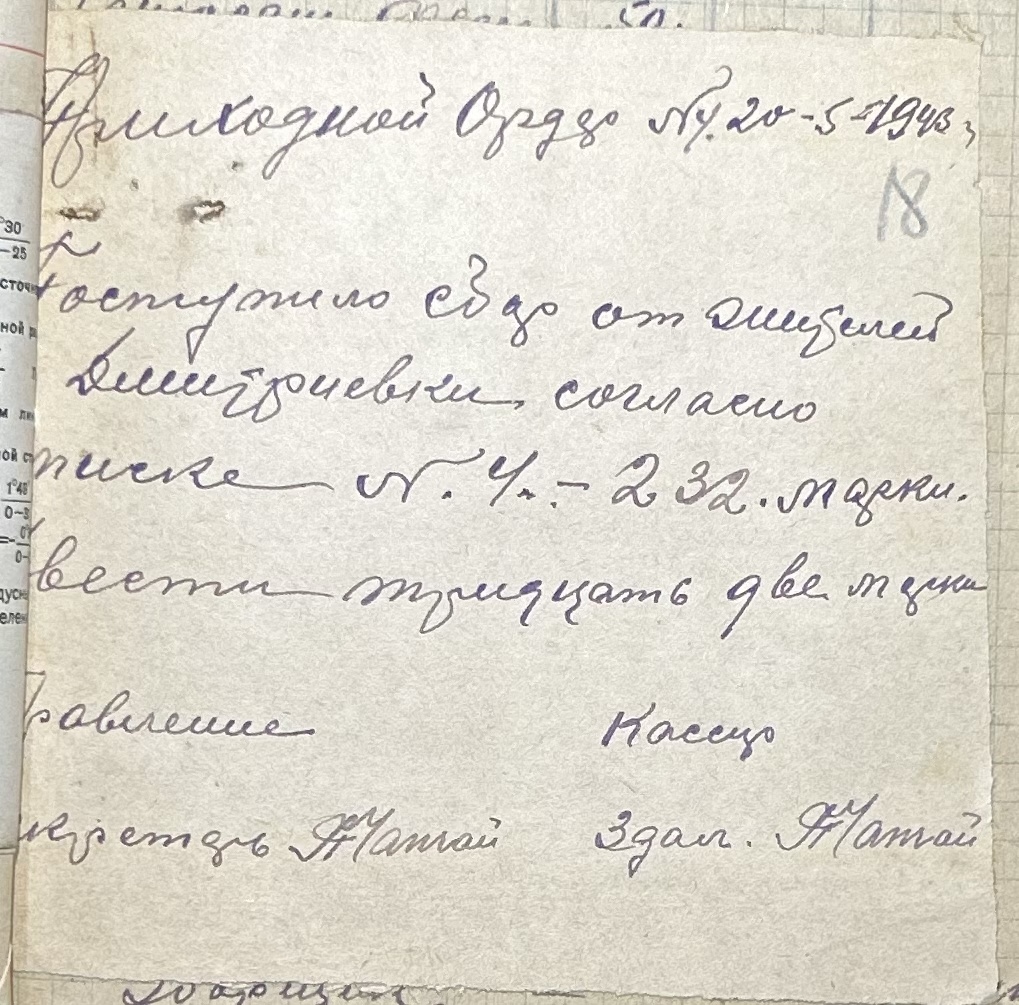 Приходной Ордер № 4. 20-5-1943 г
18
Поступило сбор от жителей
Дмитриевки согласно
писке № 4. - 232. марки.
вести тридцать две марки
Правление
Кассир
кретарь
Здал.
°30
-25
сточн
ной
м ли
ой ст
1°48
0-
дусн
елен